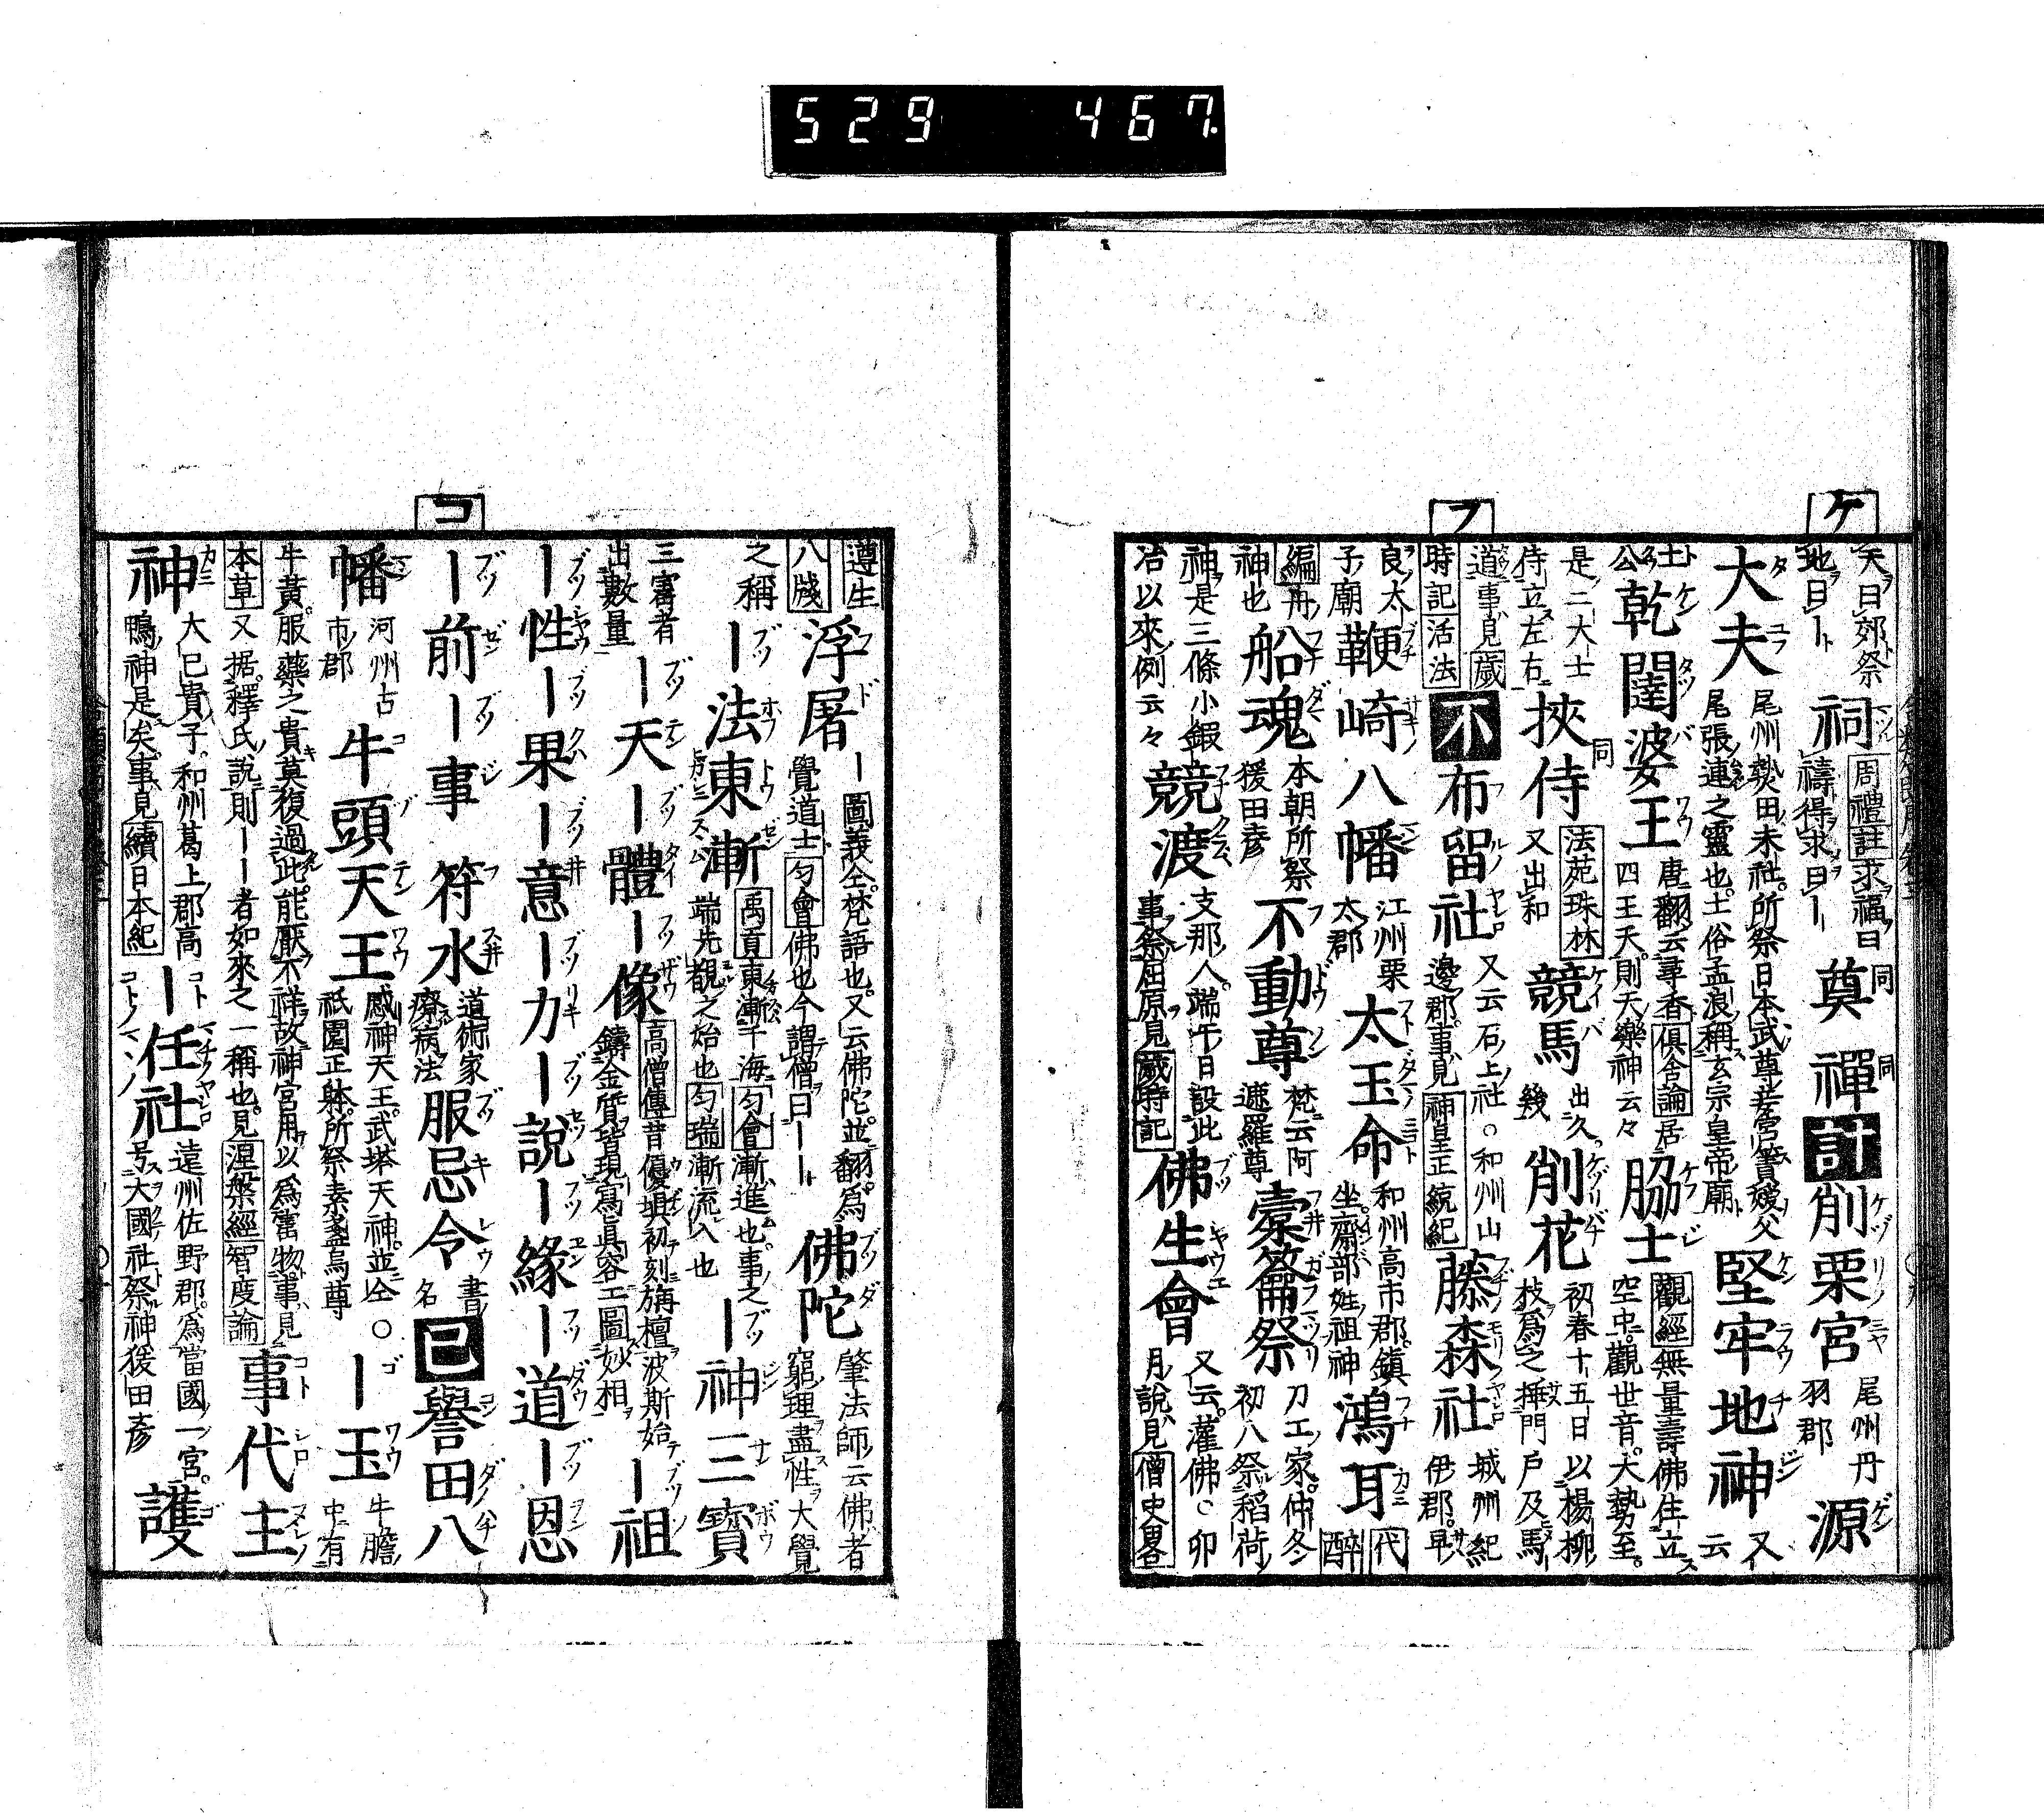 529 467.
ケ
フ
天曰郊祭地曰ー 祠 周禮註求福曰禱得求曰ー 奠 同 禪 同 計 削栗宮 尾州丹羽郡 源
大夫 尾州熱田末社所祭日本武尊妾宮簀媛父尾張連之靈也土俗孟浪稱玄宗皇帝廟 堅牢地神 又云
土公 乾闥婆王 唐翻云尋香俱舍論居四王天則天樂神云々 脇士 觀經無量壽佛住立空中觀世音大勢至
是二大士侍立左右 挾侍 同 法苑珠林又出和 競馬 出久幾 削花 初春十五日以楊柳枝爲之挿門戸及馬
道事見歲時記活法 不 布留社 又云石上社○和州山邊郡事見神皇正統紀 藤森社 城州紀伊郡早
良太子廟 鞭崎八幡 江州栗太郡 太玉命 和州高市郡鎮坐齋部姓祖神 鴻耳 代醉
編舟神也 船魂 本朝所祭猨田彦 不動尊 梵云阿遮羅尊 橐籥祭 刀工家仲冬初八祭稻荷
神是三條小鍛冶以來例云々 競渡 支那人端午日設此事祭屈原見歲時記 佛生會 又云灌佛○卯月說見僧史畧
コ
遵生八牋 浮屠 ー圖義仝梵語也又云佛陀並翻爲覺道士勻會佛也今謂僧曰ーー 佛陀 肇法師云佛者窮理盡性大覺
之稱 ー法東漸 禹貢東漸于海勻會漸進也事之端先覩之始也勻瑞漸流入也 ー神三寶
三審者出數量 ー天ー體ー像 高僧傳昔優塡初刻旃檀波斯始鑄金質皆現寫眞容工圖妙相 ー祖
ー性ー果ー意ー力ー說ー緣ー道ー恩
ー前ー事 符水 道術家療病法 服忌令 書名 己 譽田八
幡 河州古市郡 牛頭天王 感神天王武塔天神並仝○祇園正躰所祭素盞烏尊 ー玉 牛膽中有
牛黃服藥之貴莫復過此能厭不祥故神宮用以爲當物事見本草又据釋氏說則ーー者如來之一稱也見涅槃經智度論 事代主
神 大已貴子和州葛上郡高鴨神是矣事見續日本紀 ー任社 遠州佐野郡爲當國一宮号大國社祭神猨田彥 護